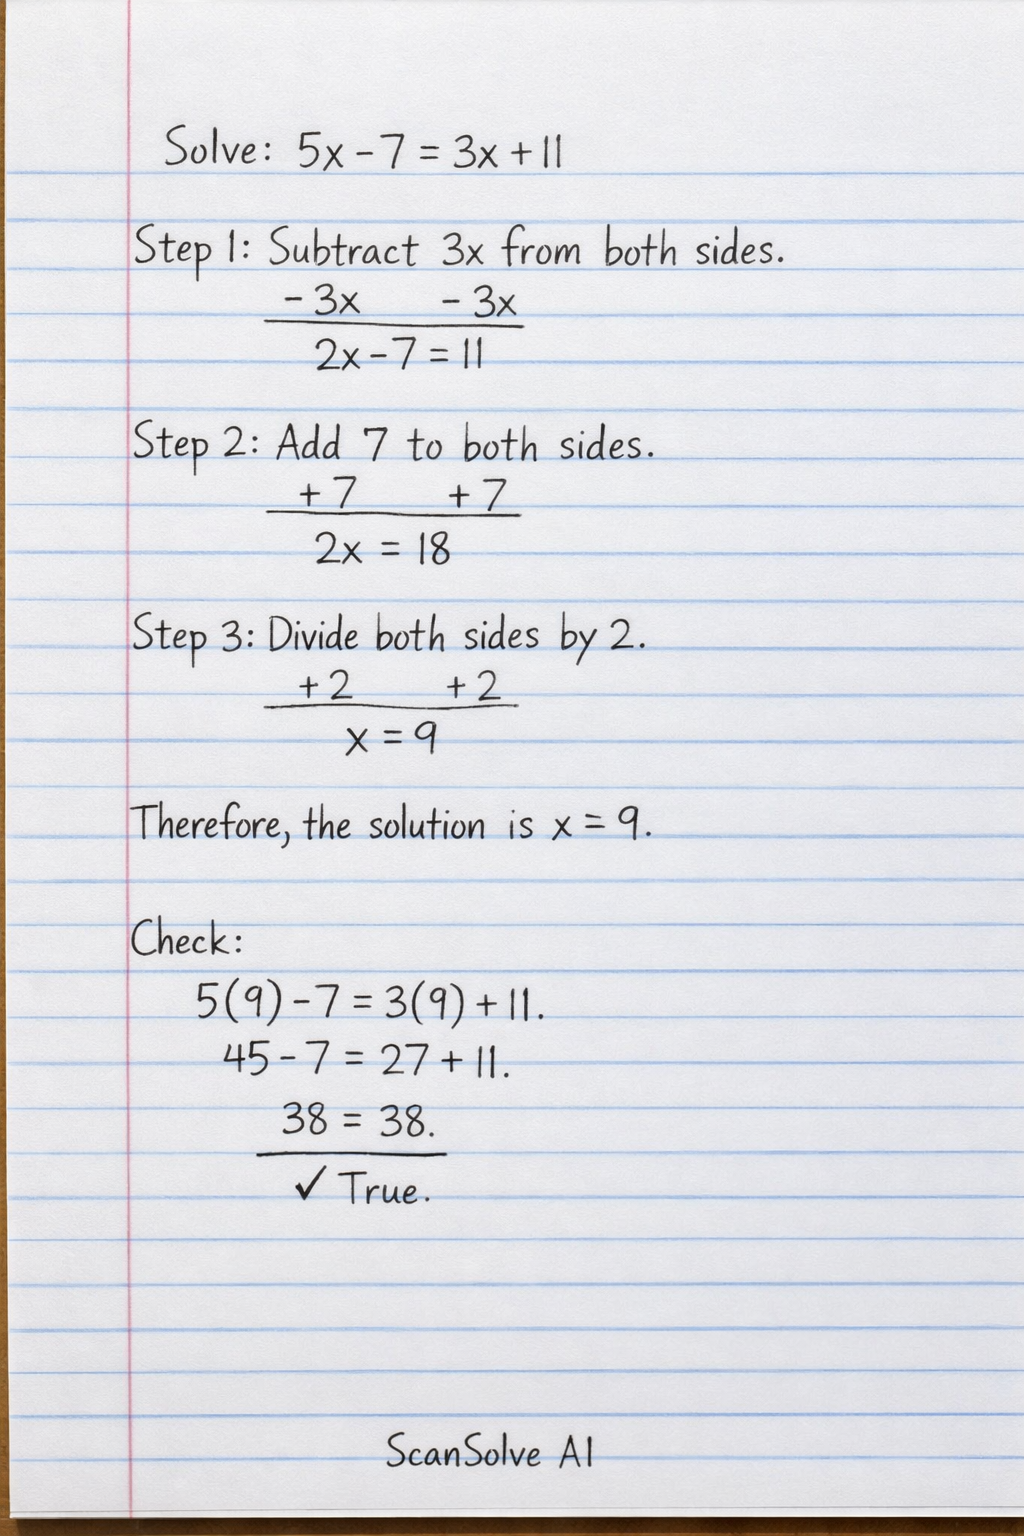 Solve: 5x - 7 = 3x + 11
Step 1: Subtract 3x from both sides.
- 3x - 3x
2x - 7 = 11
Step 2: Add 7 to both sides.
+ 7 + 7
2x = 18
Step 3: Divide both sides by 2.
+ 2 + 2
x = 9
Therefore, the solution is x = 9.
Check:
5(9) - 7 = 3(9) + 11.
45 - 7 = 27 + 11.
38 = 38.
✓ True.
ScanSolve AI